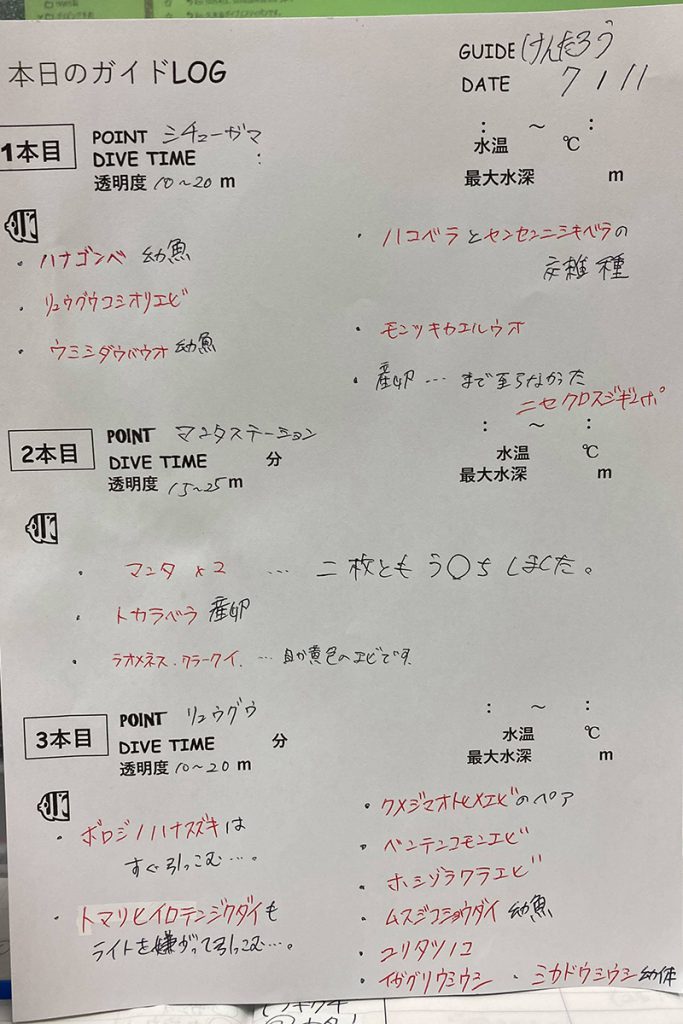 本日のガイドLOG
GUIDE けんたろう
DATE 7 / 11
1本目
POINT シチューガマ
DIVE TIME :
透明度 10~20 m
: ~ :
水温 ℃
最大水深 m
・ハナゴンベ 幼魚
・リュウグウコシオリエビ
・ウミシダウバウオ 幼魚
・ハコベラとセンセンニシキベラの
交雑種
・モンツキカエルウオ
・産卵…まで至らなかった
ニセクロスジギンポ
2本目
POINT マンタステーション
DIVE TIME 分
透明度 15~25 m
: ~ :
水温 ℃
最大水深 m
・マンタ x2 … 二枚とも う〇ち しました。
・トカラベラ 産卵
・ラオメネス・クラークイ. … 目が黄色のエビです
3本目
POINT リュウグウ
DIVE TIME 分
透明度 10~20 m
: ~ :
水温 ℃
最大水深 m
・ボロジノハナスズキは
すぐ引っこむ…。
・トマリヒイロテンジクダイも
ライトを嫌がって引っこむ…。
・クメジマオトヒメエビのペア
・ベンテンコモンエビ
・ホシゾラワラエビ
・ムスジコショウダイ 幼魚
・ユリタツノコ
・イガグリウミウシ ・ミカドウミウシ幼体